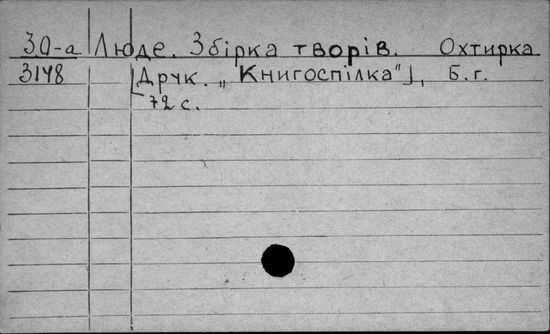 30-а Люде. Збірка творів. Охтирка
3148 [Друк. „Книгоспілка"], б.г.
72 с.